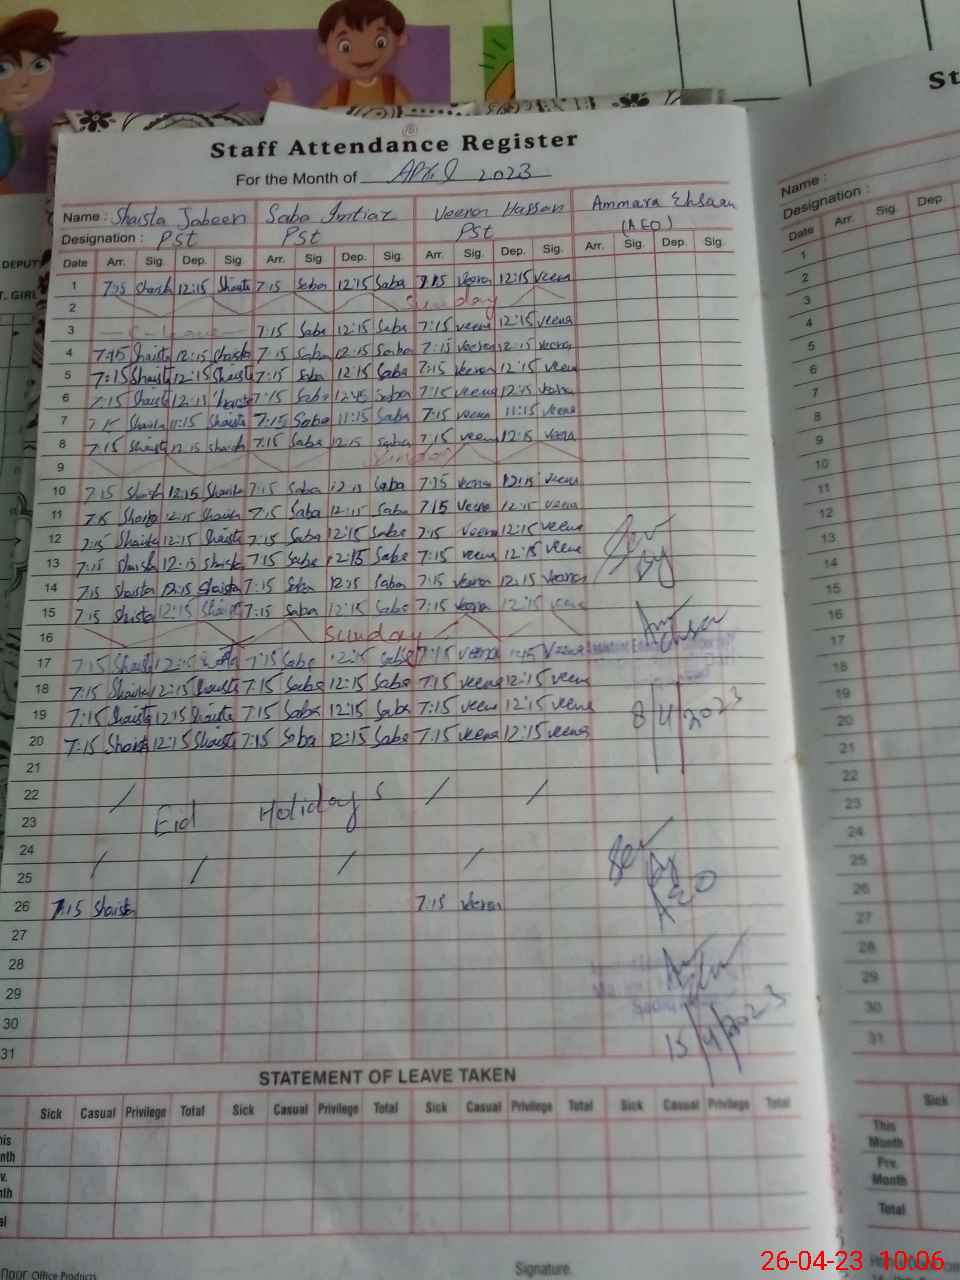 Staff Attendance Register
For the Month of April 2023
Name : Shaista Jabeen Saba Imtiaz Veena Hassan Ammara Ehsaan
Designation : PST PST PST (AEO)
Date Arr. Sig. Dep. Sig. Arr. Sig. Dep. Sig. Arr. Sig. Dep. Sig. Arr. Sig. Dep. Sig.
1 7:15 Shaista 12:15 Shaista 7:15 Saba 12:15 Saba 7:15 Veena 12:15 Veena
2 Sunday
3 7:15 Saba 12:15 Saba 7:15 Veena 12:15 Veena
4 7:15 Shaista 12:15 Shaista 7:15 Saba 12:15 Saba 7:15 Veena 12:15 Veena
5 7:15 Shaista 12:15 Shaista 7:15 Saba 12:15 Saba 7:15 Veena 12:15 Veena
6 7:15 Shaista Shaista 7:15 Saba Saba 7:15 Veena 12:15 Veena
7 7:15 Shaista 11:15 Shaista 7:15 Saba 11:15 Saba 7:15 Veena 11:15 Veena
8 7:15 Shaista 12:15 Shaista 7:15 Saba 12:15 Saba 7:15 Veena 12:15 Veena
9 Sunday
10 7:15 Shaista 12:15 Shaista 7:15 Saba 12:15 Saba 7:15 Veena 12:15 Veena
11 7:15 Shaista 12:15 Shaista 7:15 Saba 12:15 Saba 7:15 Veena 12:15 Veena
12 7:15 Shaista 12:15 Shaista 7:15 Saba 12:15 Saba 7:15 Veena 12:15 Veena
13 7:15 Shaista 12:15 Shaista 7:15 Saba 12:15 Saba 7:15 Veena 12:15 Veena
14 7:15 Shaista 12:15 Shaista 7:15 Saba 12:15 Saba 7:15 Veena 12:15 Veena
15 7:15 Shaista 12:15 Shaista 7:15 Saba 12:15 Saba 7:15 Veena 12:15 Veena
16 Sunday
17 7:15 Shaista 12:15 7:15 Saba 12:15 Saba 7:15 Veena 12:15 Veena
18 7:15 Shaista 12:15 Shaista 7:15 Saba 12:15 Saba 7:15 Veena 12:15 Veena
19 7:15 Shaista 12:15 Shaista 7:15 Saba 12:15 Saba 7:15 Veena 12:15 Veena
8/4/2023
20 7:15 Shaista 12:15 Shaista 7:15 Saba 12:15 Saba 7:15 Veena 12:15 Veena
21
22
23 Eid Holidays
24
25
AEO
26 7:15 Shaista 7:15 Veena
27
28
29
30
15/4/2023
31
STATEMENT OF LEAVE TAKEN
Sick Casual Privilege Total Sick Casual Privilege Total Sick Casual Privilege Total Sick Casual Privilege Total
Office Products
Signature.
Name :
Designation :
Date Arr. Sig. Dep.
1
2
3
4
5
6
7
8
9
10
11
12
13
14
15
16
17
18
19
20
21
22
23
24
25
26
27
28
29
30
31
Sick
This Month
Prv. Month
Total
26-04-23 10:06